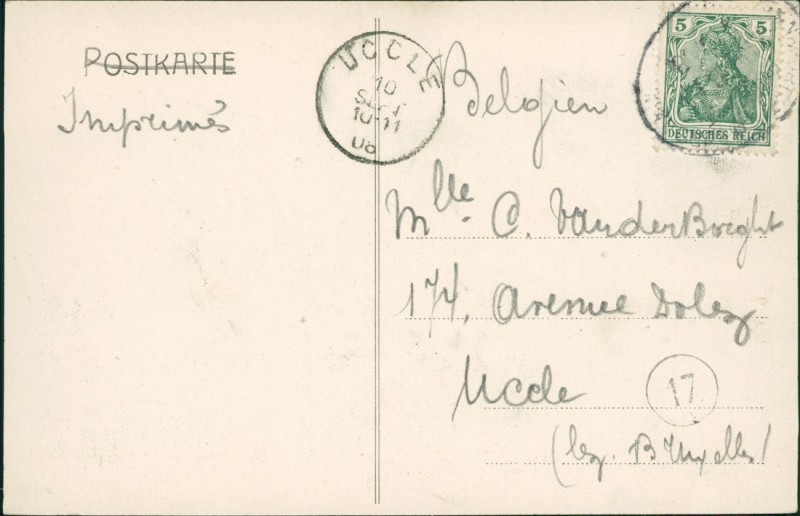 POSTKARTE
Imprimés
UCCLE
10
SEPT
10-11
08
Belgien
5 5
DEUTSCHES REICH
Mlle. C. VanderBorght
174, Avenue Dolez
Uccle
17
(lez. Bruxelles)